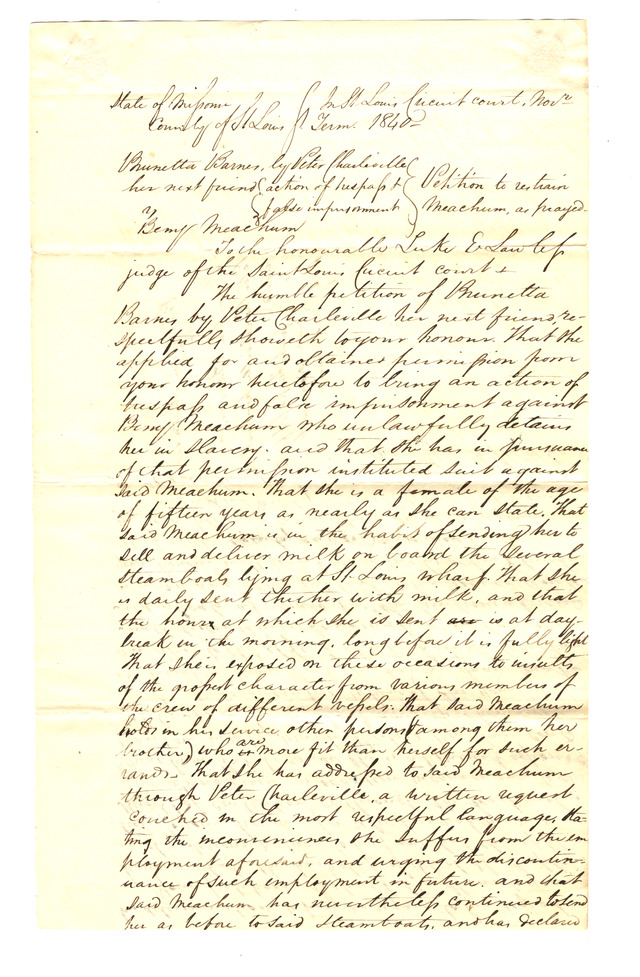 State of Missouri } { In St Louis Circuit court, Novr
County of St Louis } { Term. 1840
Brunetta Barnes, by Peter Charleville }
her next friend { action of trespass & } Petition to restrain
v { false imprisonment } Meachum, as prayed
Berry Meachum
To the honourable Luke E Lawless
judge of the Saint Louis Circuit court &
The humble petition of Brunetta
Barnes by Peter Charleville her next friend, re-
spectfully sheweth to your honour. That she
applied for and obtained permission from
your honour heretofore to bring an action of
trespass and false imprisonment against
Berry Meachum who unlawfully detains
her in slavery. and that she has in pursuance
of that permission instituted suit against
said Meachum. That she is a female of the age
of fifteen years as nearly as she can state. That
said Meachum is in the habit of sending her to
sell and deliver milk on board the several
steamboats lying at St Louis wharf. That she
is daily sent thither with milk, and that
the hour at which she is sent is at day-
break in the morning, long before it is fully light
That she is exposed on these occasions to insults
of the grossest character from various members of
the crew of different vessels. That said Meachum
holds in his service other persons (among them her
brother) who are more fit than herself for such er-
rands. That she has addressed to said Meachum
through Peter Charleville, a written request
couched in the most respectful language, sta-
ting the inconveniences she suffers from the em
ployment aforesaid, and urging the discontin-
uance of such employment in future. and that
said Meachum has nevertheless continued to send
her as before to said steamboats, and has declared